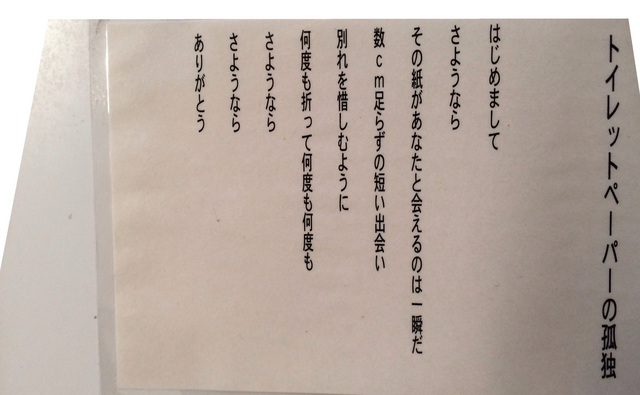 トイレットペーパーの孤独
はじめまして
さようなら
その紙があなたと会えるのは一瞬だ
数cm足らずの短い出会い
別れを惜しむように
何度も折って何度も何度も
さようなら
さようなら
ありがとう